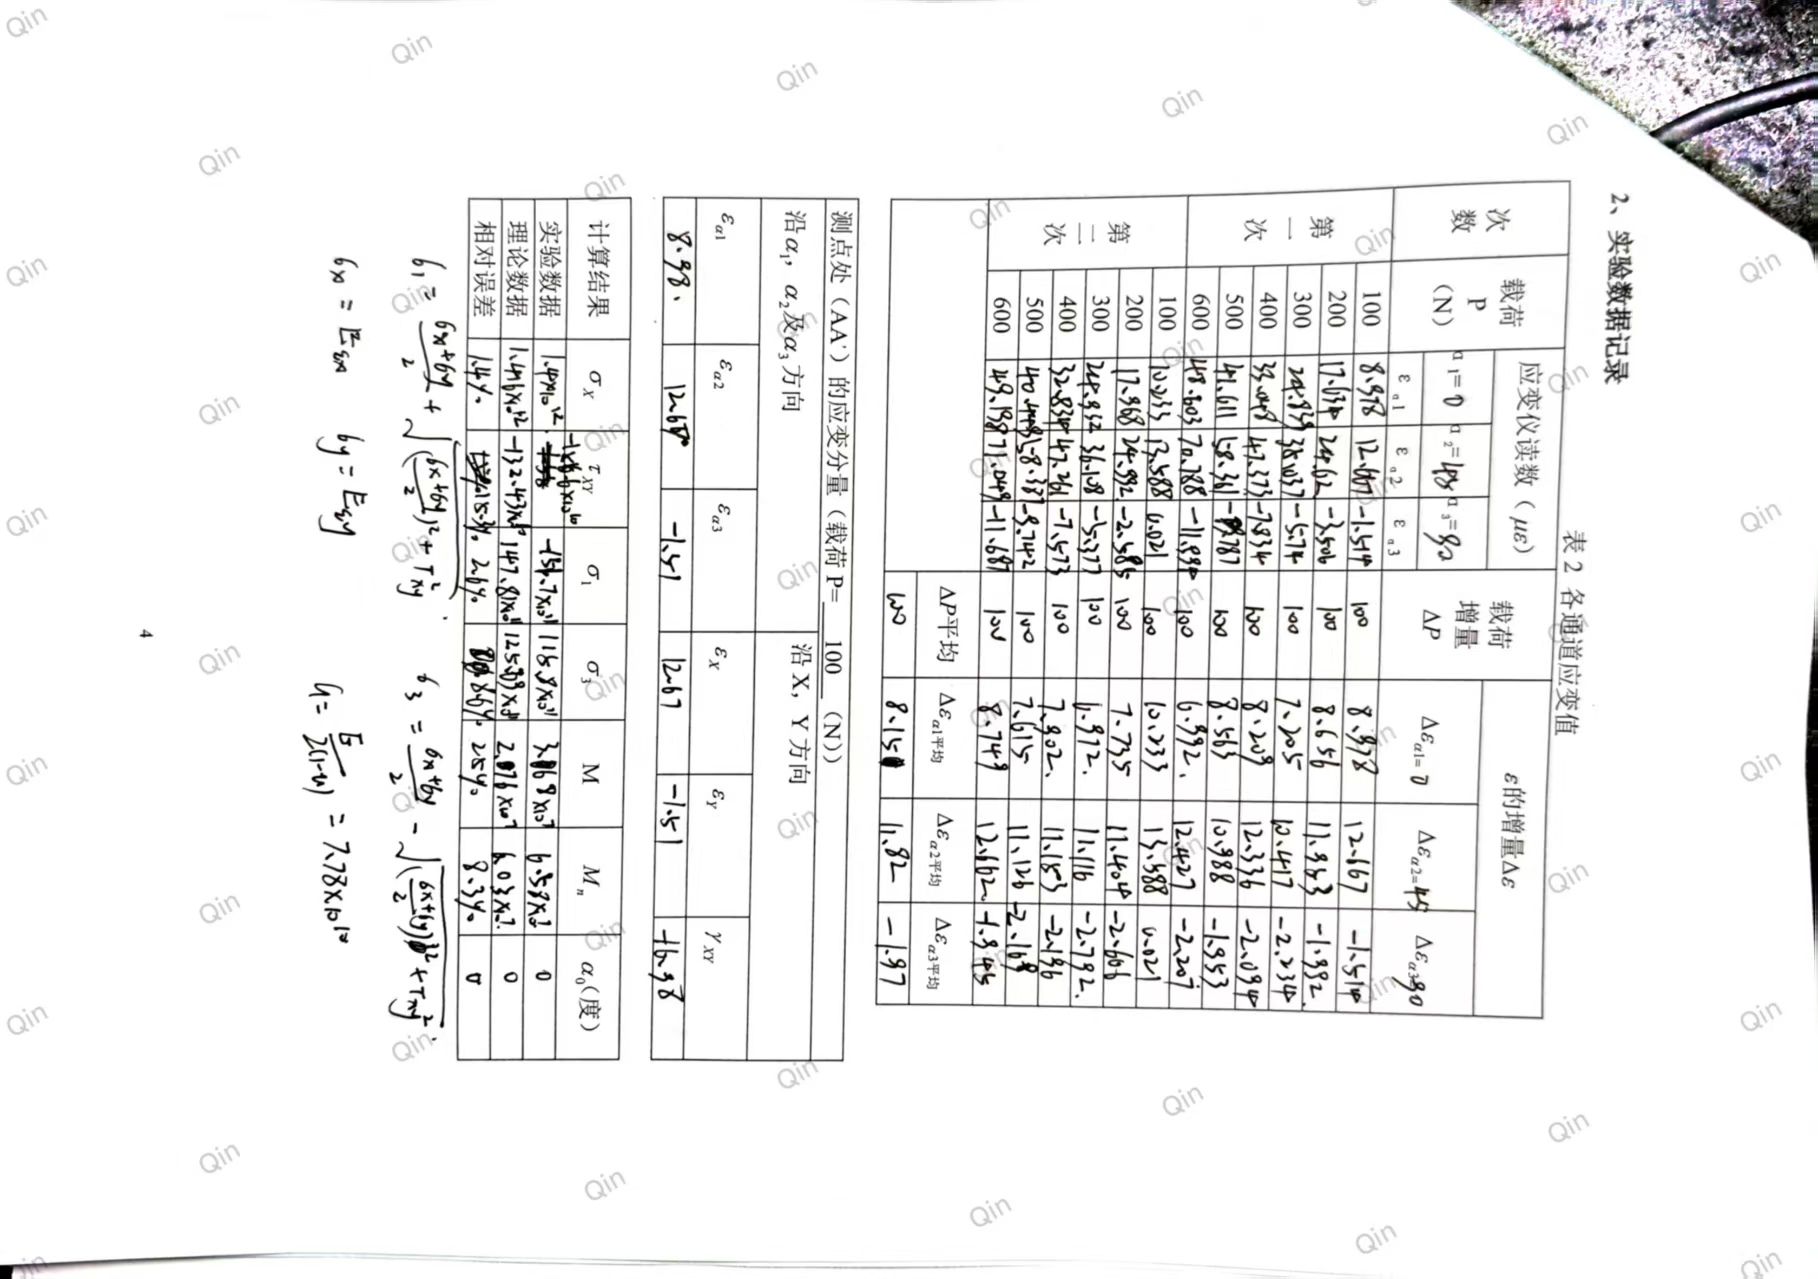 2、实验数据记录
表 2 各通道应变值
次数 载荷 P (N) 应变仪读数（με） 载荷增量 ΔP ε的增量Δε
α1=0 α2=45° α3=90 Δεα1=0 Δεα2=45 Δεα3=90
εα1 εα2 εα3
第一次
100 8.978 12.667 -1.514 100 8.978 12.667 -1.514
200 17.634 24.62 -3.506 100 8.656 11.953 -1.992
300 24.839 35.037 -5.74 100 7.205 10.417 -2.234
400 33.048 47.373 -7.834 100 8.209 12.336 -2.094
500 41.611 58.361 -9.787 100 8.563 10.988 -1.953
600 48.603 70.788 -11.994 100 6.992 12.427 -2.207
第二次
100 10.233 13.588 0.021 100 10.233 13.588 0.021
200 17.968 24.992 -2.585 100 7.735 11.404 -2.606
300 24.932 36.108 -5.377 100 6.972 11.116 -2.792
400 32.834 47.261 -7.573 100 7.902 11.153 -2.196
500 40.449 58.387 -9.742 100 7.615 11.126 -2.169
600 49.198 71.049 -11.687 100 8.749 12.662 -1.945
ΔP平均 Δεα1平均 Δεα2平均 Δεα3平均
100 8.15 11.82 -1.97
测点处（AA'）的应变分量（载荷 P= 100 （N））
沿 α1，α2 及 α3 方向 沿 X，Y 方向
εα1 εα2 εα3 εX εY γXY
8.98. 12.67 -1.51 12.67 -1.51 -16.38
计算结果 σX τXY σ1 σ3 M Mn α0(度)
实验数据 1.4×10¹² 3.168×10⁷ 6.58×10⁷ 0
理论数据 1.416×10¹² -132.43×10¹⁰ 147.81×10¹¹ 125.89×10¹¹ 2.076×10⁷ 6.03×10⁷ 0
相对误差 1.4% 15.3% 2.6% 8.6% 25% 8.3% 0
σ1 = (σx+σy)/2 + √((σx+σy)/2)² + τ²xy . σ3 = (σx+σy)/2 - √((σx+σy)/2)² + τxy² .
σx = Eεx σy = Eεy G = E/2(1+μ) = 7.78×10¹⁰
4
Qin